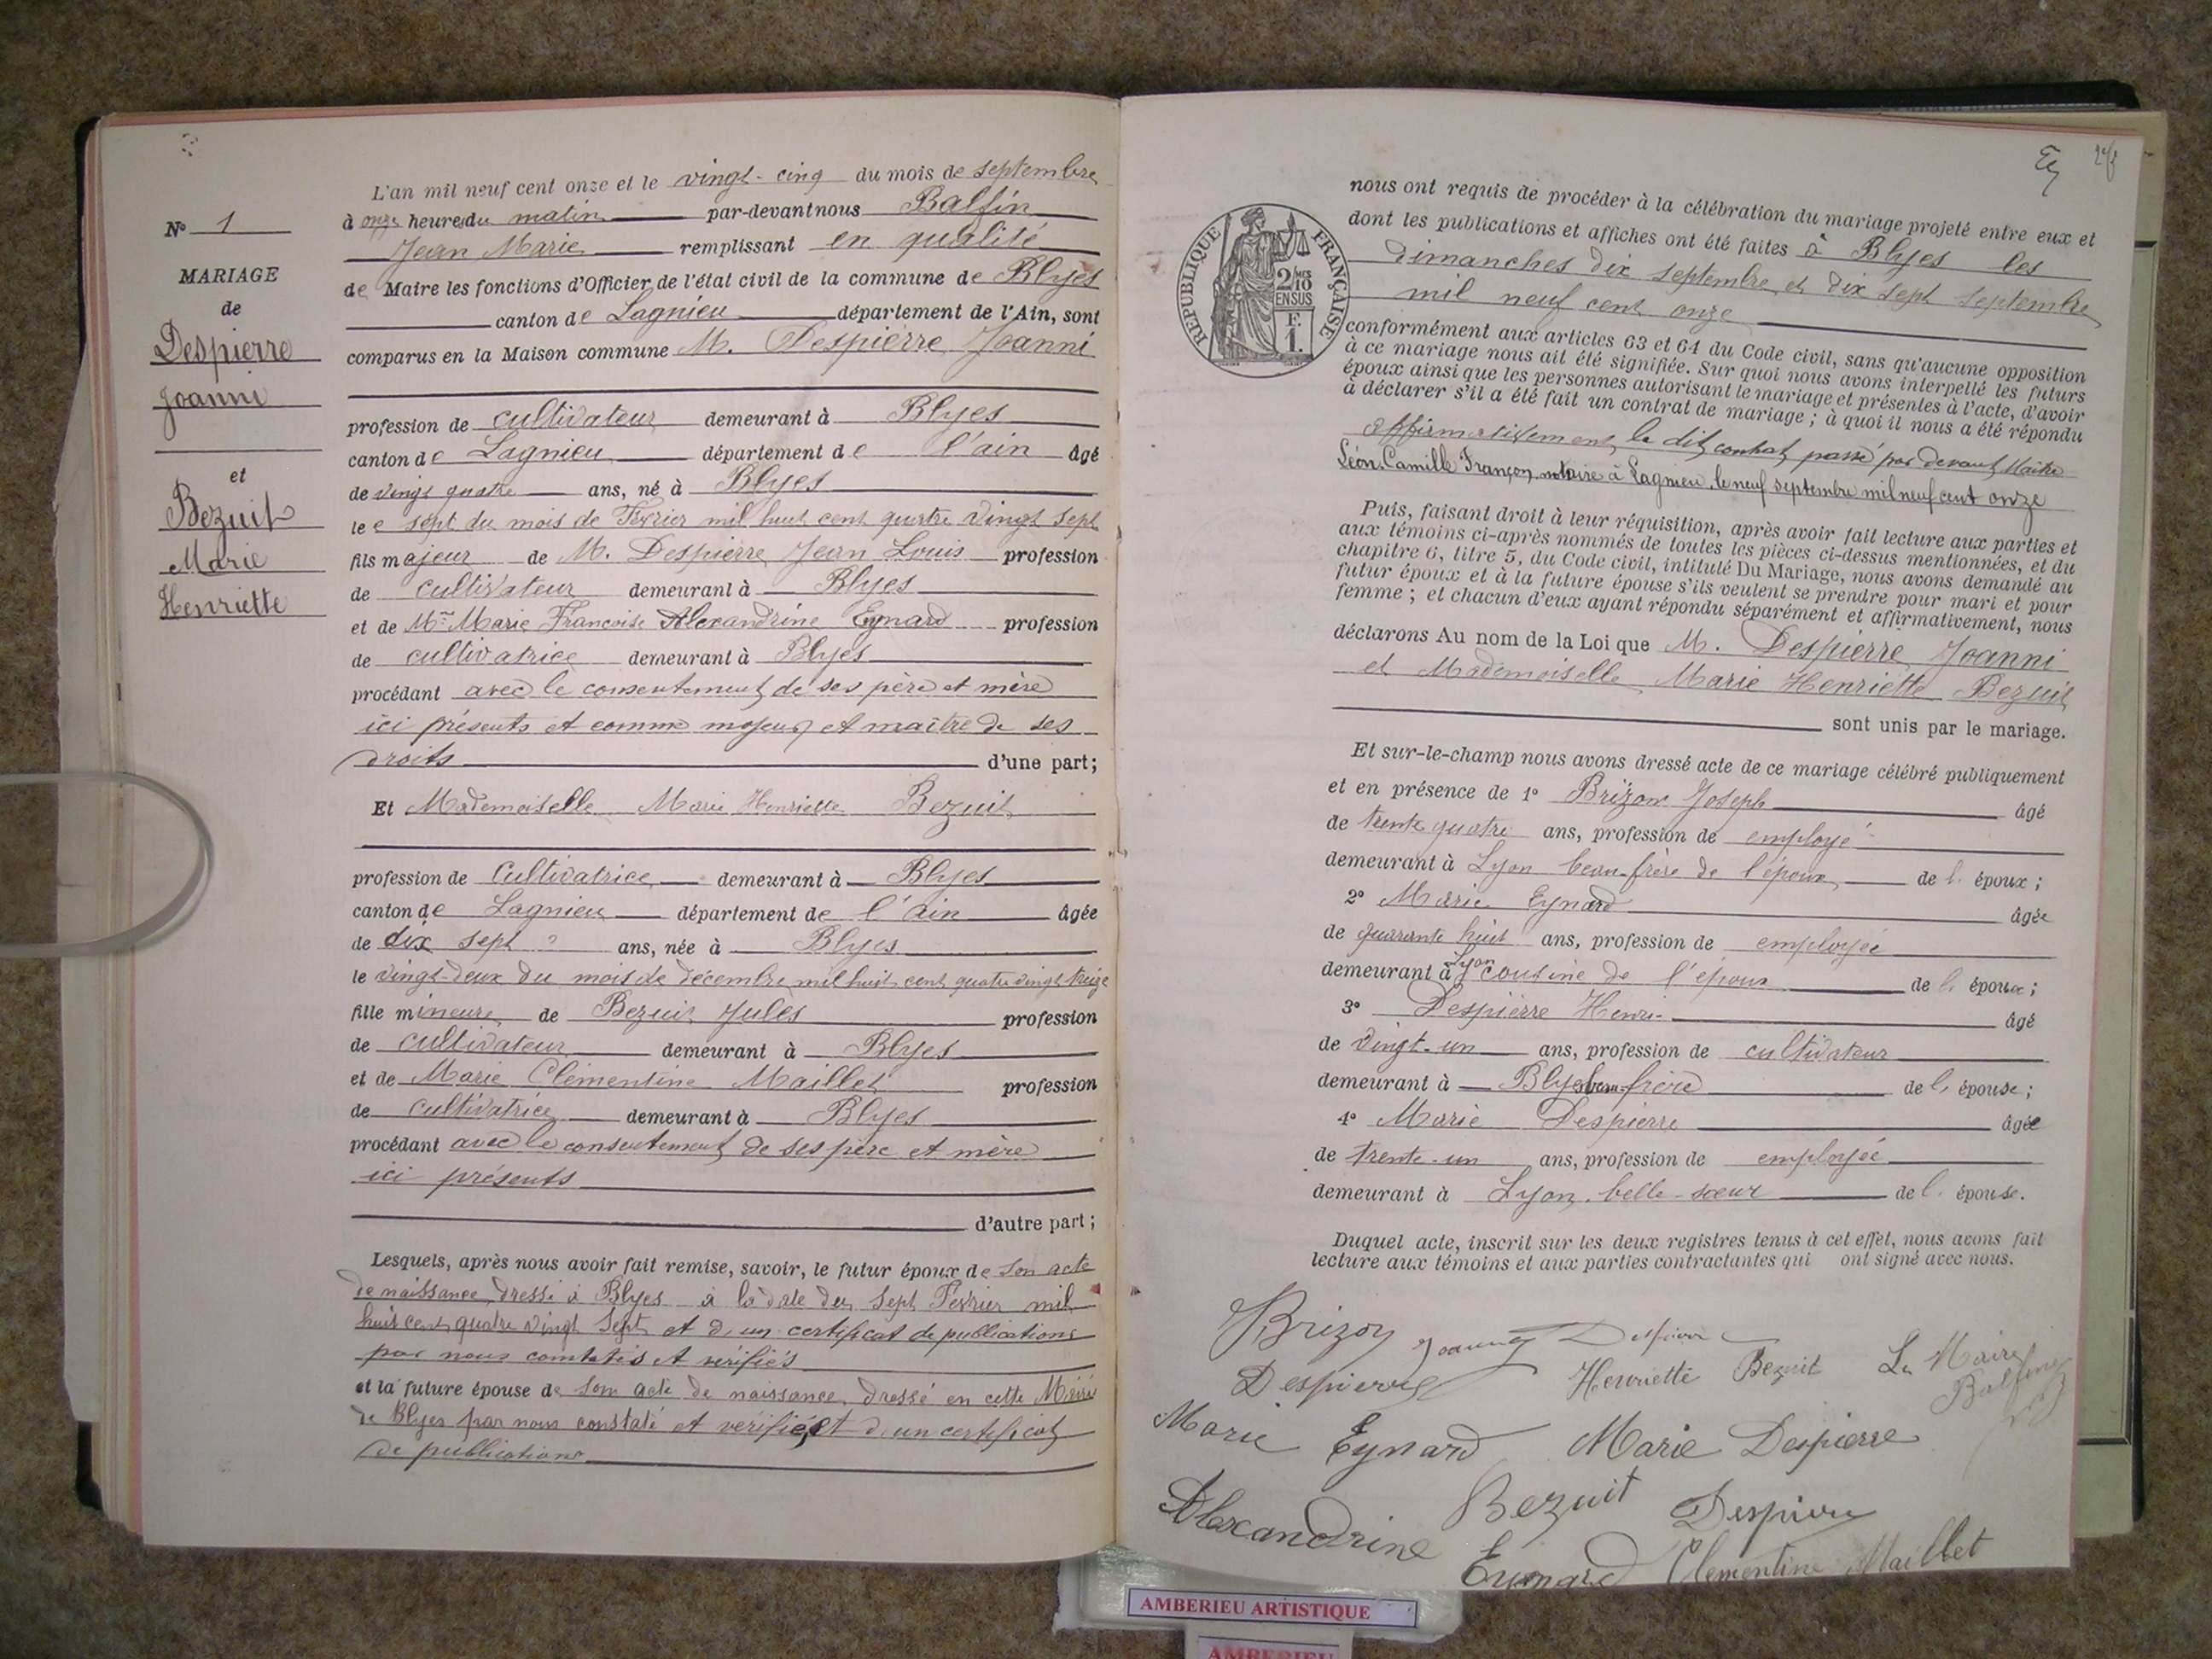 N° 1
MARIAGE
de
Despierre
Joanni
et
Bezuit
Marie
Henriette
L'an mil neuf cent onze et le vingt-cinq du mois de septembre
à onze heures du matin par-devant nous Balfin
Jean Marie remplissant en qualité
de Maire les fonctions d'Officier de l'état civil de la commune de Blyes
canton de Lagnieu département de l'Ain, sont
comparus en la Maison commune M. Despierre Joanni
profession de cultivateur demeurant à Blyes
canton de Lagnieu département de l'ain âgé
de vingt quatre ans, né à Blyes
le sept du mois de Février mil huit cent quatre vingt sept
fils majeur de M. Despierre Jean Louis profession
de cultivateur demeurant à Blyes
et de Mme Marie Francoise Alexandrine Eynard profession
de cultivatrice demeurant à Blyes
procédant avec le consentement de ses père et mère
ici présents et comme majeur et maître de ses
droits d'une part;
Et Mademoiselle Marie Henriette Bezuit
profession de Cultivatrice demeurant à Blyes
canton de Lagnieu département de l'ain âgée
de dix sept ans, née à Blyes
le vingt-deux du mois de décembre mil huit cent quatre vingt treize
fille mineure de Bezuit Jules profession
de cultivateur demeurant à Blyes
et de Marie Clémentine Maillet profession
de cultivatrice demeurant à Blyes
procédant avec le consentement de ses père et mère
ici présents
d'autre part;
Lesquels, après nous avoir fait remise, savoir, le futur époux de son acte
de naissance dressé à Blyes à la date du sept Février mil
huit cent quatre vingt sept et d'un certificat de publications
par nous constatés et vérifiés
et la future épouse de son acte de naissance dressé en cette Mairie
de Blyes par nous constaté et vérifié et d'un certificat
de publications
RÉPUBLIQUE FRANÇAISE
2/10
EN SUS
F.
1.
nous ont requis de procéder à la célébration du mariage projeté entre eux et
dont les publications et affiches ont été faites à Blyes les
dimanches dix septembre et dix sept septembre
mil neuf cent onze
conformément aux articles 63 et 64 du Code civil, sans qu'aucune opposition
à ce mariage nous ait été signifiée. Sur quoi nous avons interpellé les futurs
époux ainsi que les personnes autorisant le mariage et présentes à l'acte, d'avoir
à déclarer s'il a été fait un contrat de mariage; à quoi il nous a été répondu
affirmativement, le dit contrat passé par devant Maître
Léon Camille Françon, notaire à Lagnieu, le neuf septembre mil neuf cent onze
Puis, faisant droit à leur réquisition, après avoir fait lecture aux parties et
aux témoins ci-après nommés de toutes les pièces ci-dessus mentionnées, et du
chapitre 6, titre 5, du Code civil, intitulé Du Mariage, nous avons demandé au
futur époux et à la future épouse s'ils veulent se prendre pour mari et pour
femme; et chacun d'eux ayant répondu séparément et affirmativement, nous
déclarons Au nom de la Loi que M. Despierre Joanni
et Mademoiselle Marie Henriette Bezuit
sont unis par le mariage.
Et sur-le-champ nous avons dressé acte de ce mariage célébré publiquement
et en présence de 1° Brizon Joseph âgé
de trente quatre ans, profession de employé
demeurant à Lyon beau-frère de l'époux de l' époux;
2° Marie Eynard âgée
de quarante huit ans, profession de employée
demeurant à Lyon cousine de l'époux de l' époux;
3° Despierre Henri âgé
de vingt-un ans, profession de cultivateur
demeurant à Blyes beau-frère de l' épouse;
4° Marie Despierre âgée
de trente-un ans, profession de employée
demeurant à Lyon, belle-sœur de l' épouse.
Duquel acte, inscrit sur les deux registres tenus à cet effet, nous avons fait
lecture aux témoins et aux parties contractantes qui ont signé avec nous.
Brizon Joanny Despierre
Despierre Henriette Bezuit Le Maire
Balfin
Marie Eynard Marie Despierre
Bezuit Despierre
Alexandrine Eynard Clementine Maillet
AMBERIEU ARTISTIQUE
AMBERIEU